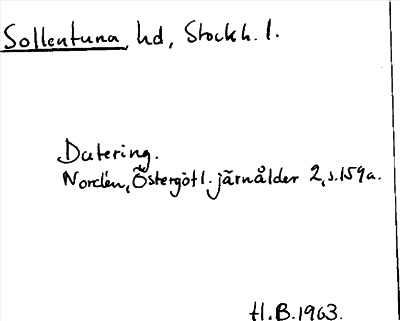 Sollentuna, hd, Stockh. l.
Datering.
Nordén, Östergötl. järnålder 2, s.159a.
H.B.1963.